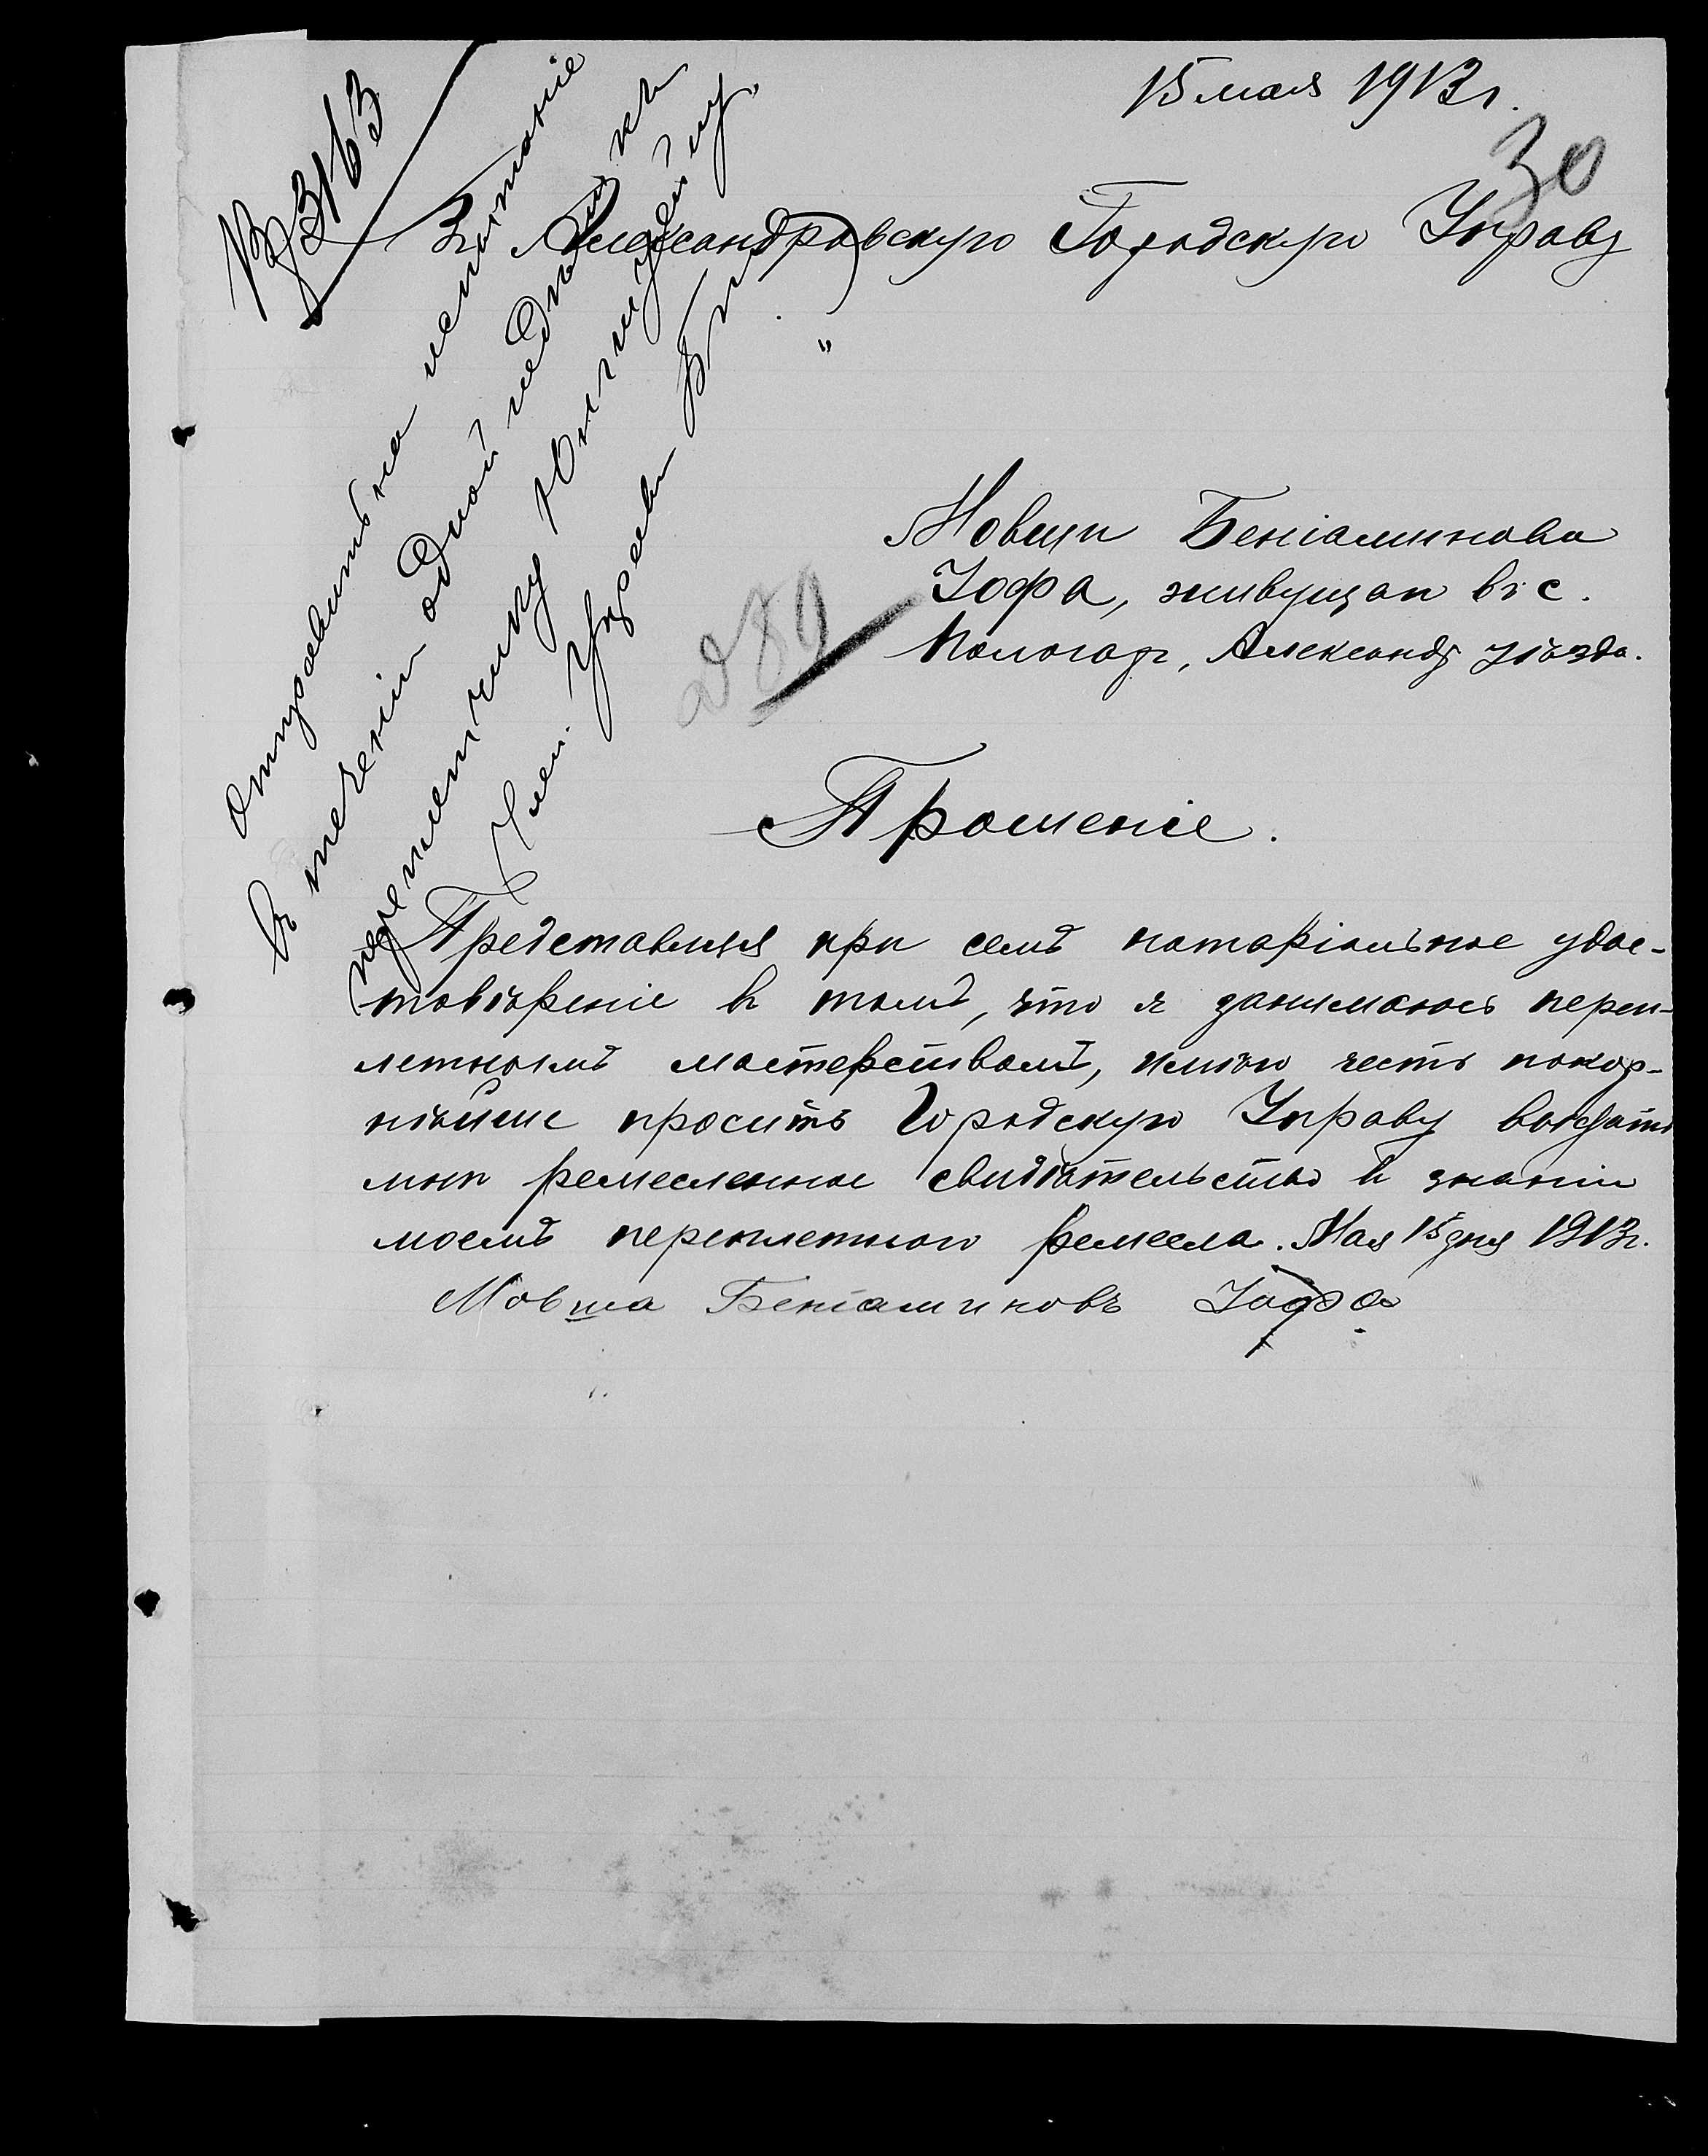 15 мая 1913 г.
30
№ 3163
Въ Александровскую Городскую Управу
отправить на испытаніе
въ теченіи одной недѣли къ
переплетчику
Член. Управы
Мовши Беніаминова
Іофа, живущая въ с.
Пологахъ, Александр уѣзда.
д 89
Прошеніе.
Представляя при семъ нотаріальное удос-
товѣреніе въ томъ, что я занимаюсь переп-
летнымъ мастерствомъ, имѣю честь покор-
нѣйше просить Городскую Управу выдать
мнѣ ремесленное свидѣтельство въ знаніи
моемъ переплетнаго ремесла. Мая 15 дня 1913 г.
Мовша Беніаминовъ Іофа